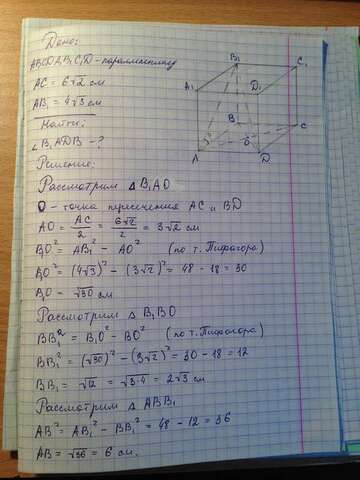 Дано:
ABCDA₁B₁C₁D₁ - параллелепипед
AC = 6√2 см
AB₁ = 4√3 см
Найти:
∠ B₁ADB - ?
Решение:
B₁ C₁
A₁ D₁
B C
O
A D
Рассмотрим Δ B₁AO
O - точка пересечения AC и BD
AO = AC/2 = 6√2/2 = 3√2 см
B₁O² = AB₁² - AO² (по т. Пифагора)
B₁O² = (4√3)² - (3√2)² = 48 - 18 = 30
B₁O - √30 см
Рассмотрим Δ B₁BO
BB₁² = B₁O² - BO² (по т. Пифагора)
BB₁² = (√30)² - (3√2)² = 30 - 18 = 12
BB₁ = √12 = √3·4 = 2√3 см
Рассмотрим Δ ABB₁
AB² = AB₁² - BB₁² = 48 - 12 = 36
AB = √36 = 6 см.